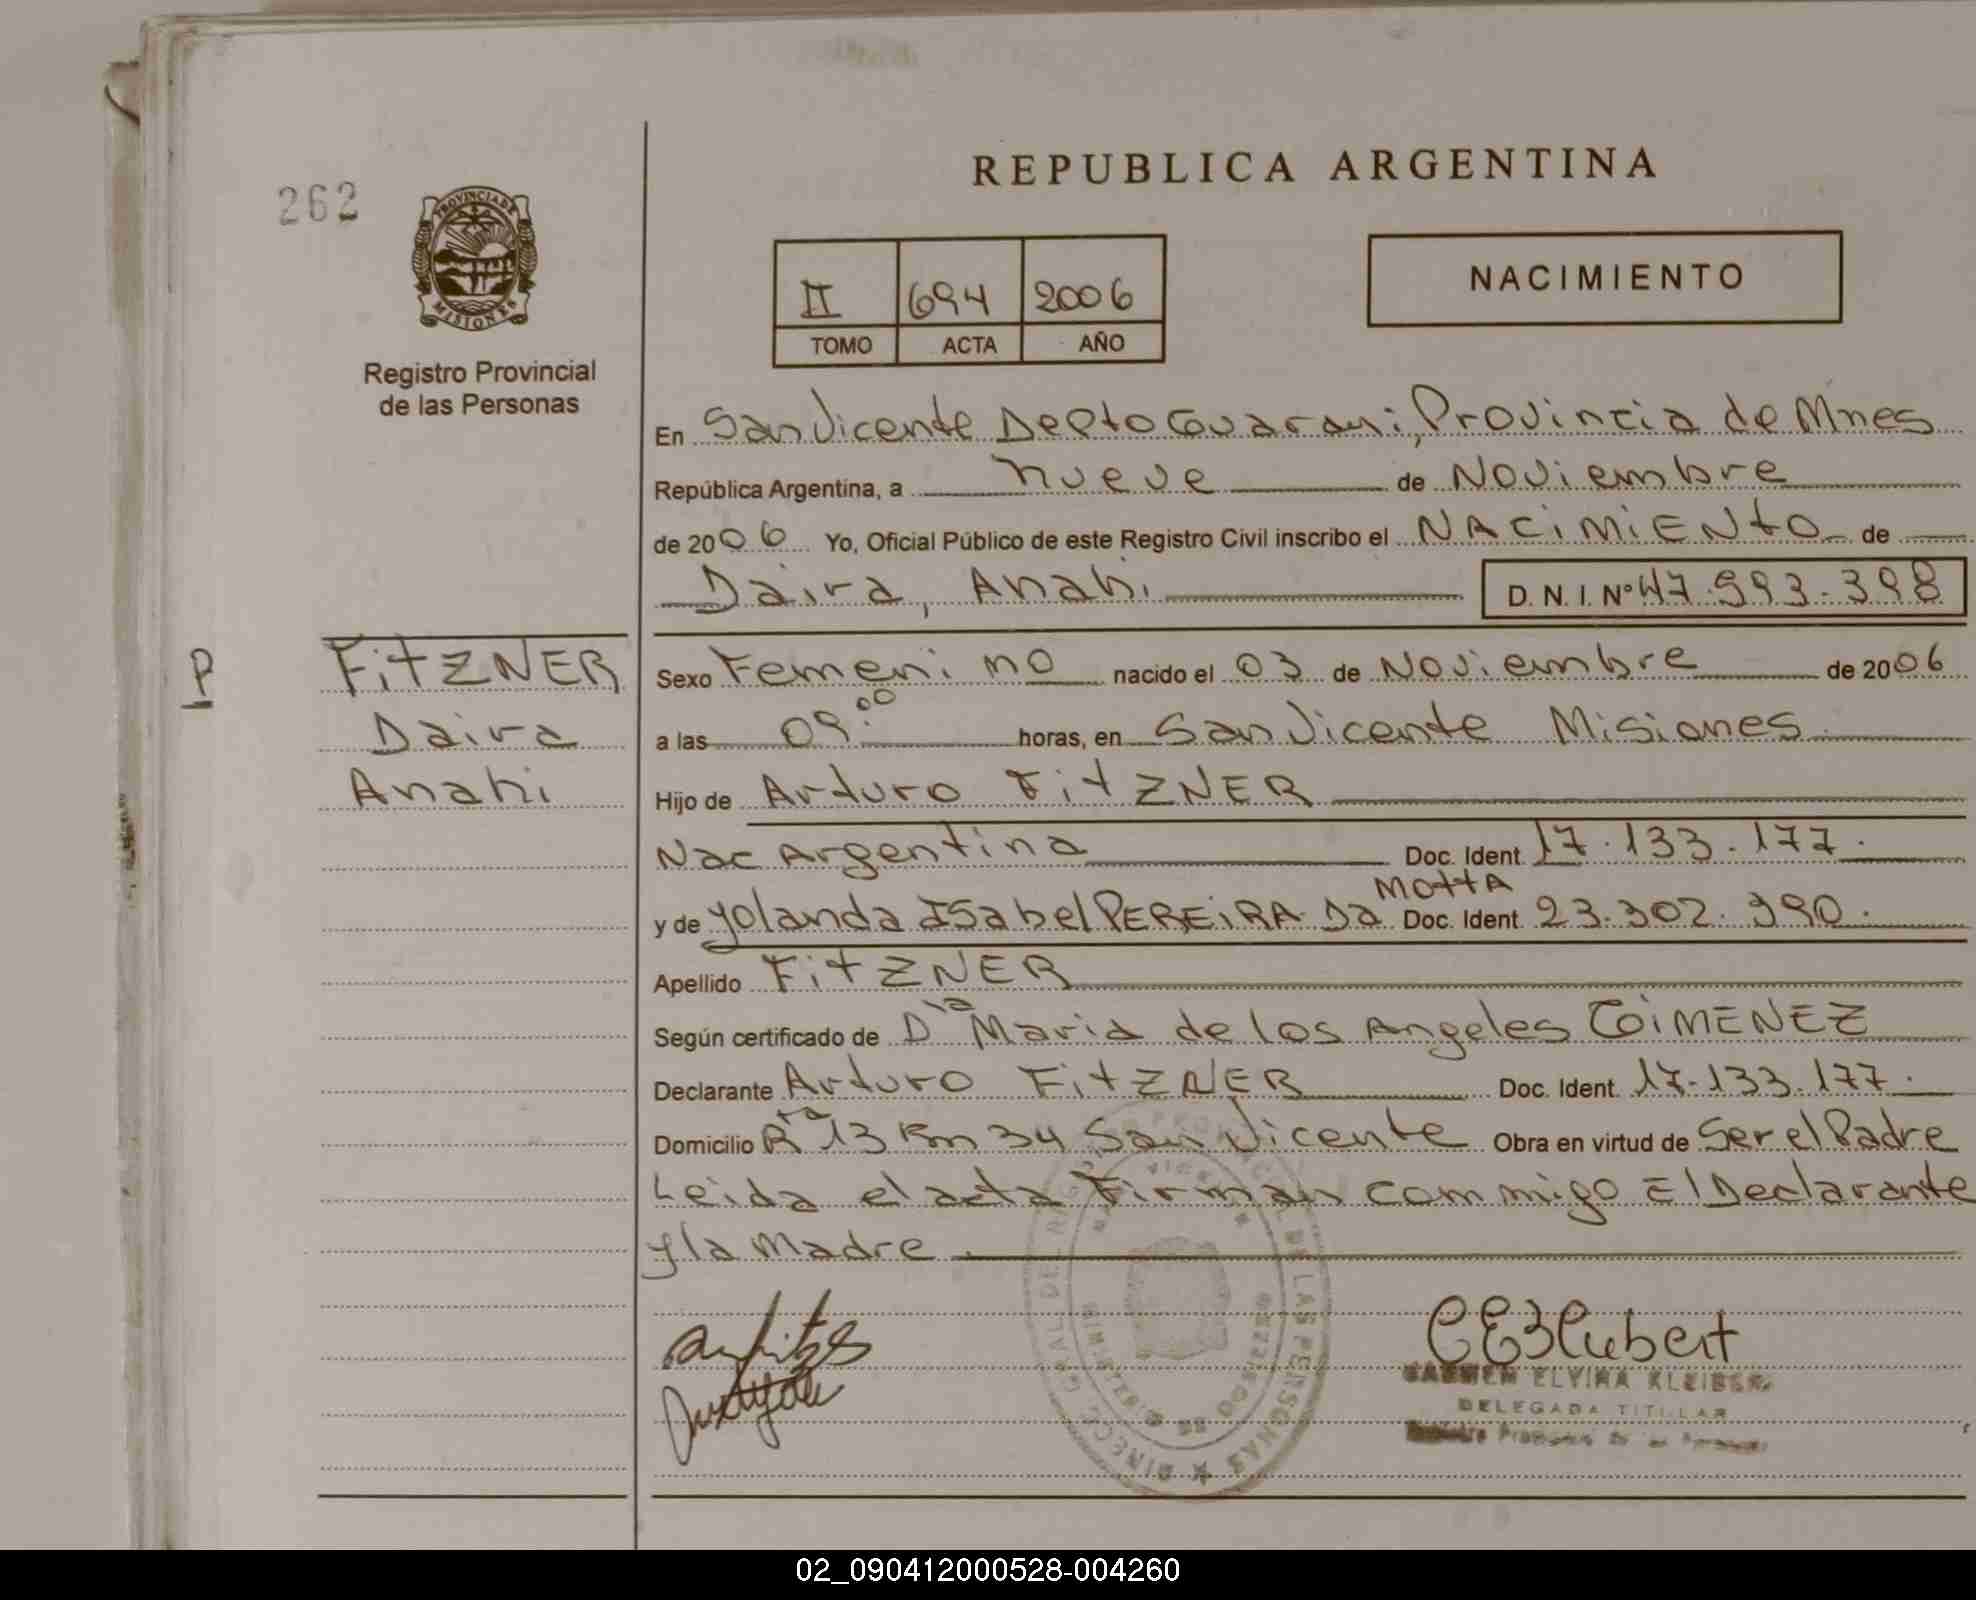 REPUBLICA ARGENTINA
262
PROVINCIA DE
MISIONES
Registro Provincial
de las Personas
II 694 2006
TOMO ACTA AÑO
NACIMIENTO
En San Vicente Depto Guarani, Provincia de Mnes
República Argentina, a nueve de Noviembre
de 2006 Yo, Oficial Público de este Registro Civil inscribo el NACIMIENTO de
Daira, Anahi D. N. I. Nº 47.993.398
P
FITZNER
Daira
Anahi
Sexo Femenino nacido el 03 de Noviembre de 2006
a las 09:00 horas, en San Vicente Misiones
Hijo de Arturo FITZNER
Nac Argentina Doc. Ident. 17.133.177.
y de Yolanda Isabel PEREIRA Da MOTTA Doc. Ident. 23.302.390.
Apellido FITZNER
Según certificado de Dra Maria de los Angeles GIMENEZ
Declarante Arturo FITZNER Doc. Ident. 17.133.177.
Domicilio Rta 13 Km 34 San Vicente Obra en virtud de Ser el Padre
Leida el acta Firman commigo El Declarante
y la Madre.
DIRECC. GRAL DEL REGISTRO PROVINCIAL DE LAS PERSONAS
MINISTERIO DE GOBIERNO
CARMEN ELVIRA KLEIBER
DELEGADA TITULAR
Registro Provincial de las Personas
02_090412000528-004260